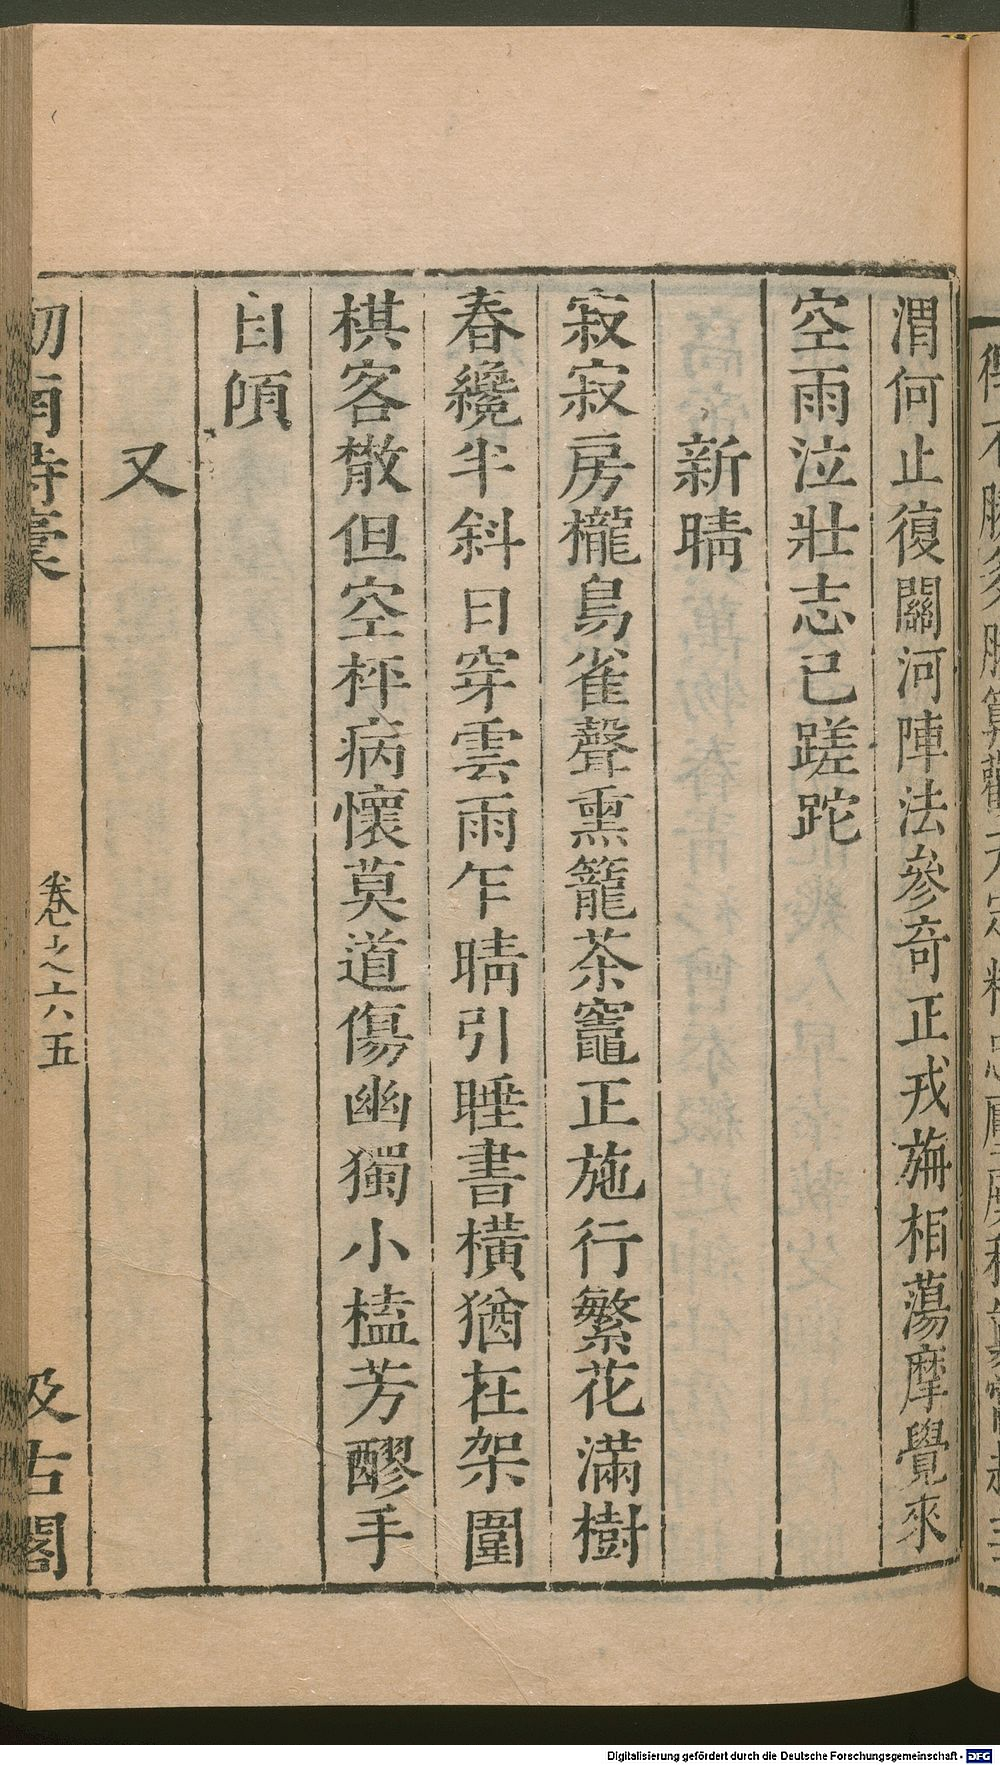 渭何止復關河陣法參奇正戎旃相蕩摩覺來
空雨泣壯志已蹉跎
新晴
寂寂房櫳鳥雀聲熏籠茶竈正施行繁花滿樹
春纔半斜日穿雲雨乍晴引睡書橫猶在架圍
棋客散但空枰病懷莫道傷幽獨小榼芳醪手
自傾
又
劒南詩稾
卷之六五
汲古閣
Digitalisierung gefördert durch die Deutsche Forschungsgemeinschaft - DFG